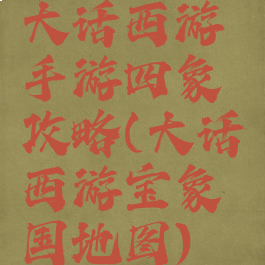 大话西游
手游四象
攻略(大话
西游宝象
国地图)